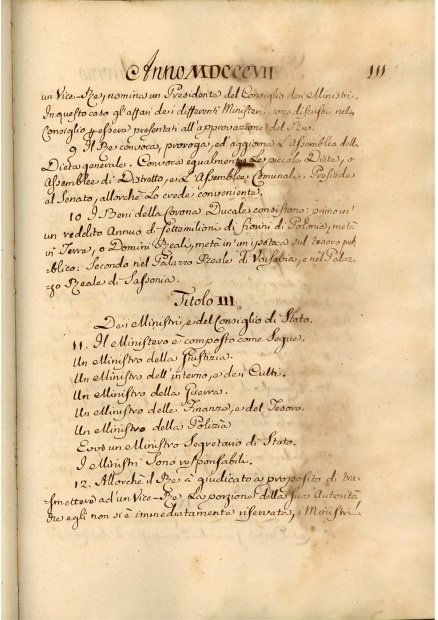 Anno MDCCCVII 111
un Vice-Re, nomina un Presidente del Consiglio dei Ministri.
In questo caso gli affari dei differenti Ministeri sono discussi nel
Consiglio p essere presentati all'approvazione del Re.
9. Il Re convoca, proroga, ed aggiorna l'Assemblea della
Dieta generale. Convoca egualmente Le piccole Diete, o
Assemblee di Distretto, e L'Assemblee Comunali. Presiede
al Senato, allorchè Lo crede conveniente.
10. I Beni della Corona Ducale consistono: primo in
un reddito Annuo di sette milioni di fiorini di Polonia, metà
in Terra, o Domini Reali, metà in un ipoteca sul tesoro pub
blico: Secondo nel Palazzo Reale di Varsavia, e nel Palaz-
zo Reale di Sassonia.
Titolo III.
Dei Ministri, e del Consiglio di Stato.
11. Il Ministero è composto come Segue.
Un Ministro della Giustizia.
Un Ministro dell'interno, e dei Culti.
Un Ministro della Guerra.
Un Ministro delle Finanze, e del Tesoro.
Un Ministro della Polizia
Evvi un Ministro Segretario di Stato.
I Ministri Sono responsabili.
12. Allorchè il Re à giudicato a proposito di tra-
smettere ad un Vice-Re La porzione della sua Autorità
che egli non si è immediatamente riservata, i Ministri